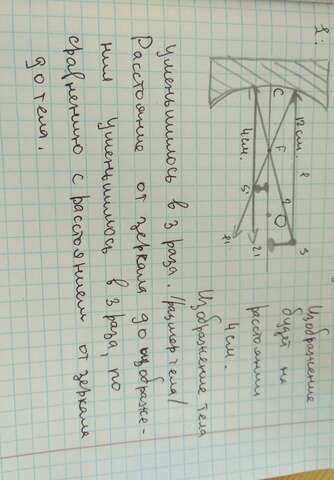 1:
Изображение
будет на
расстоянии
4см.
12см.
S
2
O
C
F
4см.
S'
2'
1'
Изображение тела
уменьшилось в 3 раза. /размер тела/
Расстояние от зеркала до изображе-
ния уменьшилось в 3 раза, по
сравнению с расстоянием от зеркала
до тела.